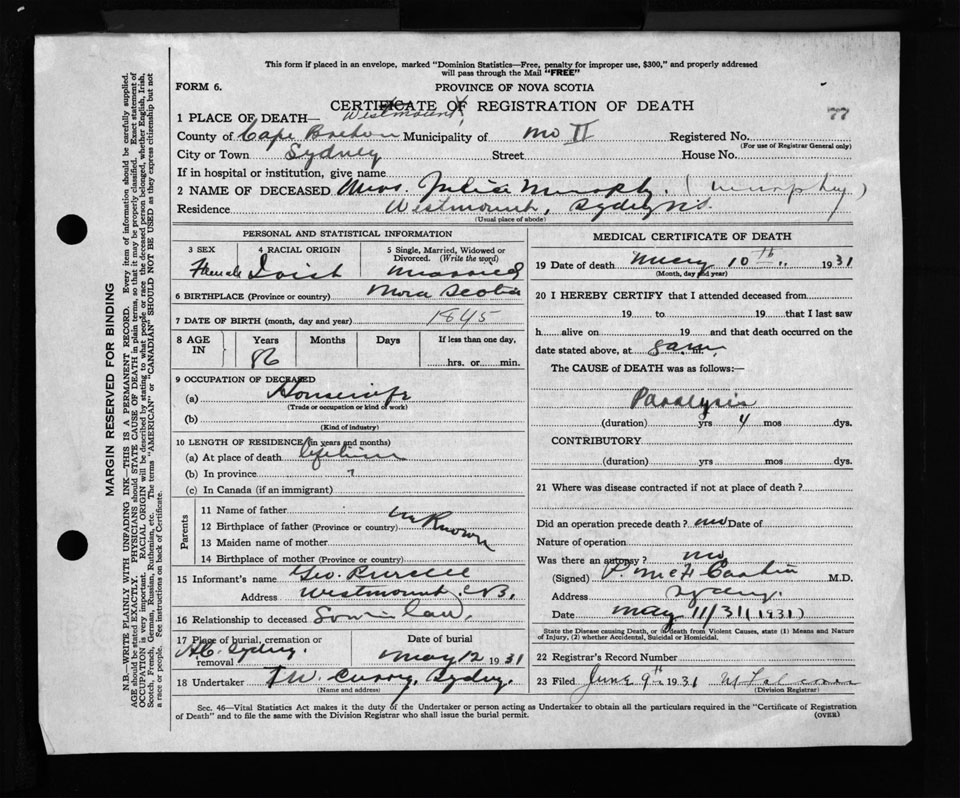 This form if placed in an envelope, marked "Dominion Statistics—Free, penalty for improper use, $300," and properly addressed
will pass through the Mail "FREE"
FORM 6. PROVINCE OF NOVA SCOTIA
CERTIFICATE OF REGISTRATION OF DEATH 77
1 PLACE OF DEATH— Westmount
County of Cape Breton Municipality of No II Registered No.
(For use of Registrar General only)
City or Town Sydney Street House No.
If in hospital or institution, give name
2 NAME OF DECEASED Mrs. Julia Murphy. (Murphey)
Residence Westmount, Sydney N.S.
(Usual place of abode)
PERSONAL AND STATISTICAL INFORMATION
3 SEX 4 RACIAL ORIGIN 5 Single, Married, Widowed or
Divorced. (Write the word)
Female Irish Married
6 BIRTHPLACE (Province or country) Nova Scotia
7 DATE OF BIRTH (month, day and year) 1845
8 AGE IN Years Months Days If less than one day,
86 hrs. or min.
9 OCCUPATION OF DECEASED
(a) Housewife
(Trade or occupation or kind of work)
(b)
(Kind of industry)
10 LENGTH OF RESIDENCE (in years and months)
(a) At place of death lifetime
(b) In province "
(c) In Canada (if an immigrant)
Parents
11 Name of father
12 Birthplace of father (Province or country) unKnown
13 Maiden name of mother
14 Birthplace of mother (Province or country)
15 Informant's name Geo. Purcell
Address Westmount C.B.
16 Relationship to deceased Son in law,
17 Place of burial, cremation or Date of burial
removal Sydney. May 12 1931
18 Undertaker T W Curry, Sydney.
(Name and address)
MEDICAL CERTIFICATE OF DEATH
19 Date of death May 10th 1931
(Month, day and year)
20 I HEREBY CERTIFY that I attended deceased from
19 to 19 that I last saw
h alive on 19 and that death occurred on
date stated above, at m.
The CAUSE of DEATH was as follows:—
Paralysis
(duration) yrs 4 mos dys.
CONTRIBUTORY
(duration) yrs. mos. dys.
21 Where was disease contracted if not at place of death?
Did an operation precede death? no Date of
Nature of operation
Was there an autopsy? no
(Signed) M.D.
Address Sydney.
Date May 11/31 (1931)
State the Disease causing Death, or in death from Violent Causes, state (1) Means and Nature
of Injury, (2) whether Accidental, Suicidal or Homicidal.
22 Registrar's Record Number
23 Filed June 9th 1931
(Division Registrar)
Sec. 46—Vital Statistics Act makes it the duty of the Undertaker or person acting as Undertaker to obtain all the particulars required in the "Certificate of Registration
of Death" and to file the same with the Division Registrar who shall issue the burial permit. (OVER)
MARGIN RESERVED FOR BINDING
N.B.—WRITE PLAINLY WITH UNFADING INK—THIS IS A PERMANENT RECORD. Every item of information should be carefully supplied.
AGE should be stated EXACTLY. PHYSICIANS should STATE CAUSE OF DEATH in plain terms, so that it may be properly classified. Exact statement of
OCCUPATION is very important. RACIAL ORIGIN will be described by stating to what people or race the deceased person belonged, whether English, Irish,
Scotch, French, German, Russian, Ruthenian, etc. The terms "AMERICAN" or "CANADIAN" SHOULD NOT BE USED as they express citizenship but not
a race or people. See instructions on back of Certificate.